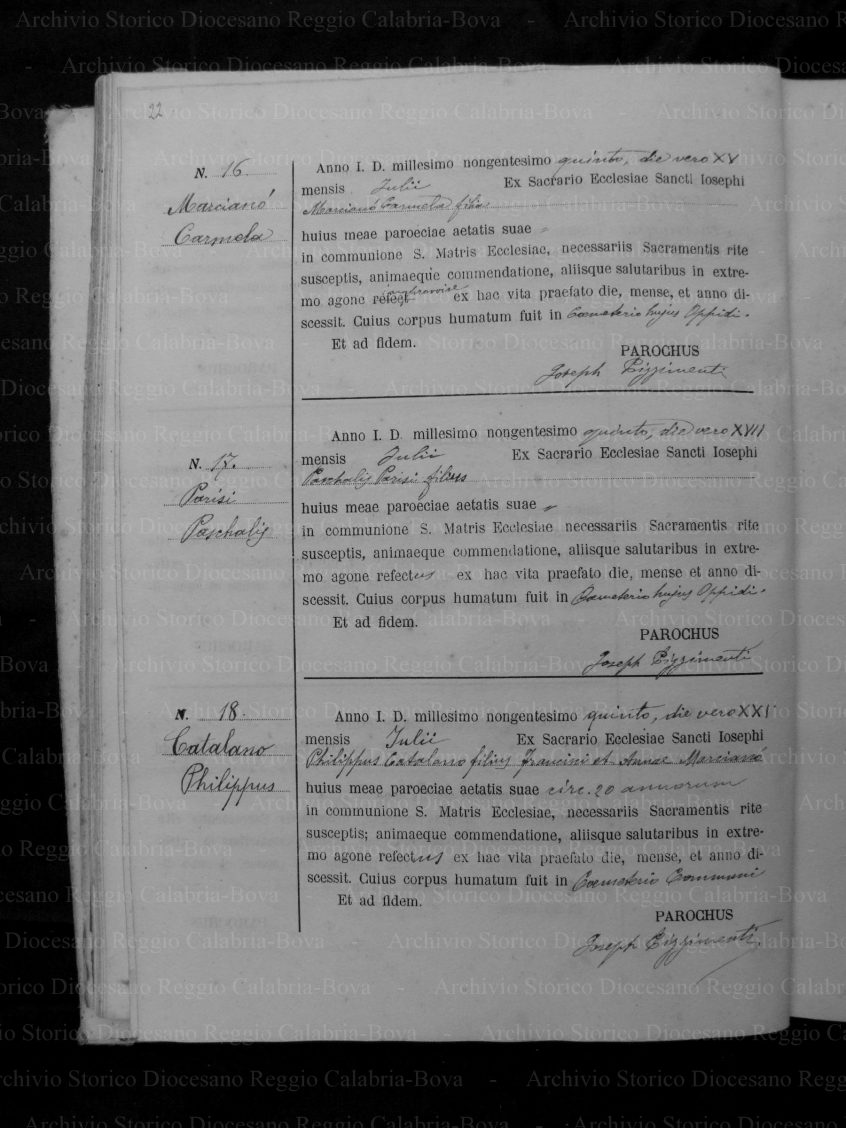 22
N. 16.
Marcianó
Carmela
Anno I. D. millesimo nongentesimo quinto, die vero XV
mensis Julii Ex Sacrario Ecclesiae Sancti Iosephi
Marcianó Carmela filia
huius meae paroeciae aetatis suae
in communione S. Matris Ecclesiae, necessariis Sacramentis rite
susceptis, animaeque commendatione, aliisque salutaribus in extre-
mo agone refect ex hac vita praefato die, mense, et anno di-
scessit. Cuius corpus humatum fuit in Coemeterio hujus Oppidi.
Et ad fidem.
PAROCHUS
Joseph Pizzimenti
N. 17.
Parisi
Paschalis
Anno I. D. millesimo nongentesimo quinto, die vero XVII
mensis Julii Ex Sacrario Ecclesiae Sancti Iosephi
Paschalis Parisi filius
huius meae paroeciae aetatis suae
in communione S. Matris Ecclesiae necessariis Sacramentis rite
susceptis, animaeque commendatione, aliisque salutaribus in extre-
mo agone refectus ex hac vita praefato die, mense et anno di-
scessit. Cuius corpus humatum fuit in Coemeterio hujus Oppidi.
Et ad fidem.
PAROCHUS
Joseph Pizzimenti
N. 18.
Catalano
Philippus
Anno I. D. millesimo nongentesimo quinto, die vero XXI
mensis Julii Ex Sacrario Ecclesiae Sancti Iosephi
Philippus Catalano filius Francisci et Annae Marcianó
huius meae paroeciae aetatis suae circ. 20 annorum
in communione S. Matris Ecclesiae, necessariis Sacramentis rite
susceptis; animaeque commendatione, aliisque salutaribus in extre-
mo agone refectus ex hac vita praefato die, mense, et anno di-
scessit. Cuius corpus humatum fuit in Coemeterio Communi
Et ad fidem.
PAROCHUS
Joseph Pizzimenti